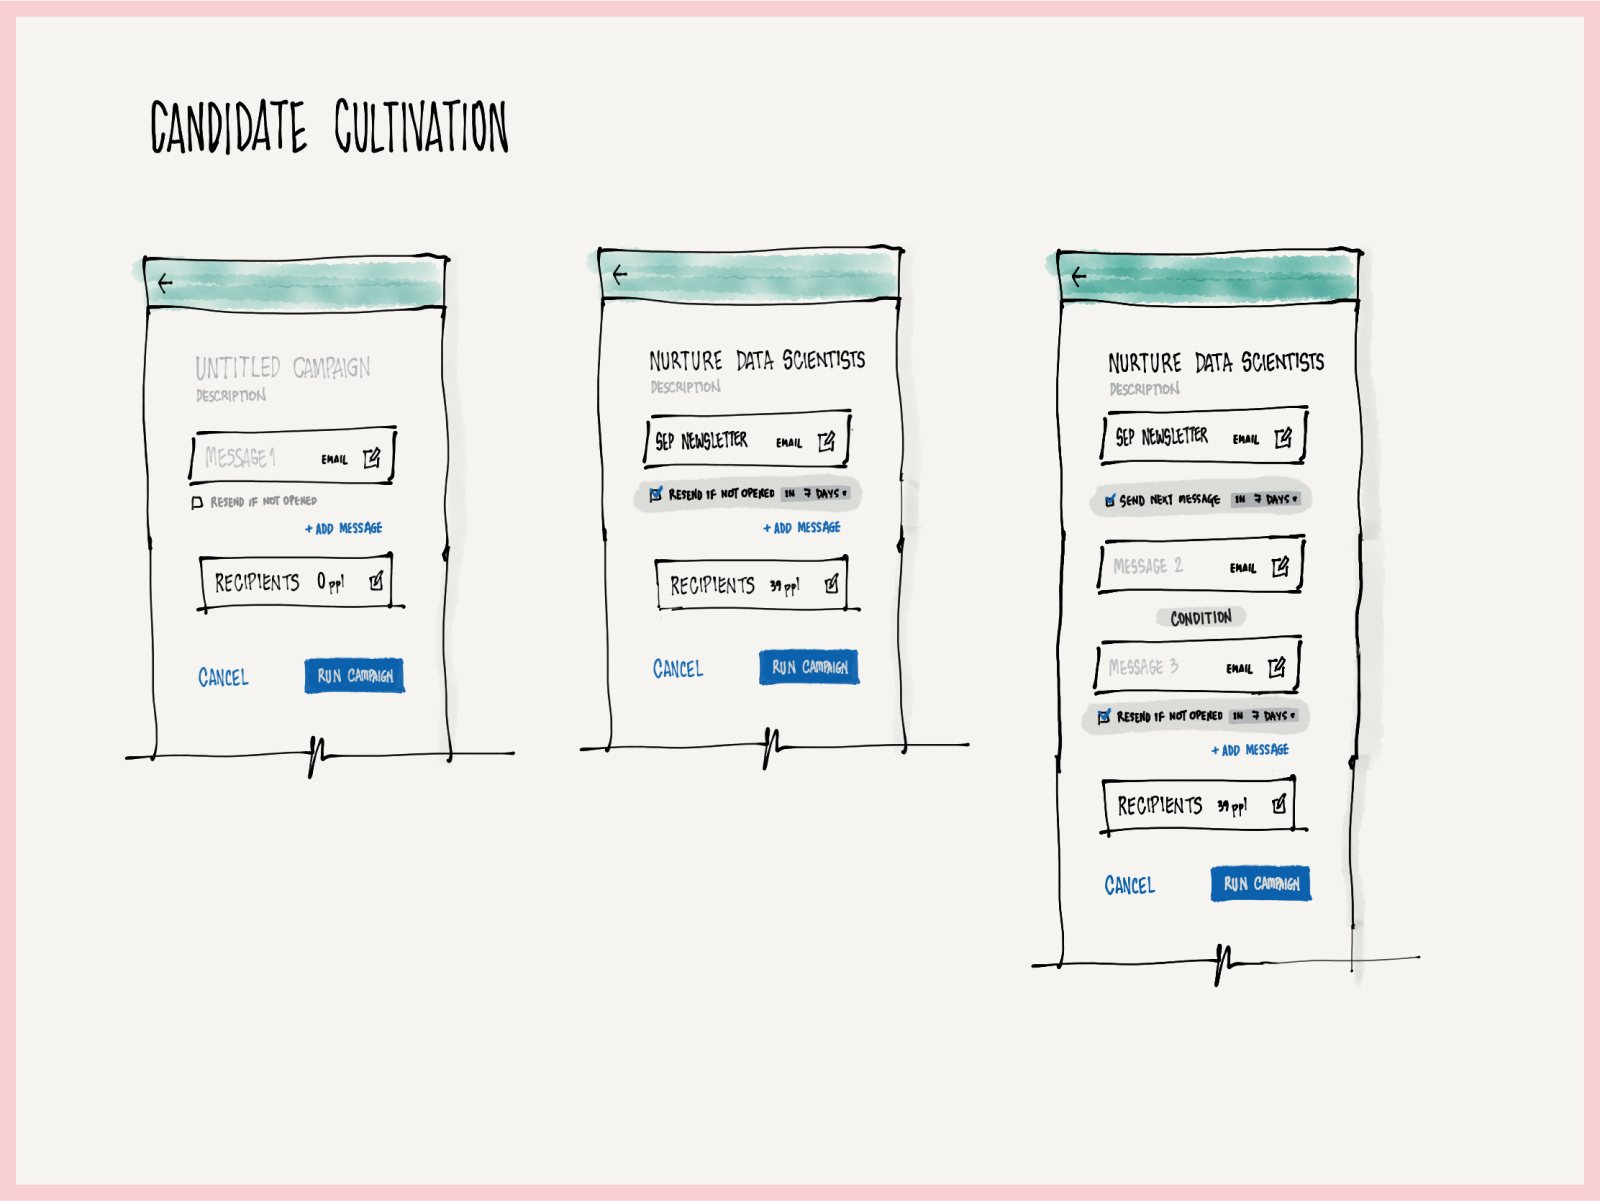 CANDIDATE CULTIVATION
UNTITLED CAMPAIGN
DESCRIPTION
MESSAGE 1 EMAIL
RESEND IF NOT OPENED
+ ADD MESSAGE
RECIPIENTS 0 ppl
CANCEL RUN CAMPAIGN
NURTURE DATA SCIENTISTS
DESCRIPTION
SEP NEWSLETTER EMAIL
RESEND IF NOT OPENED IN 7 DAYS
+ ADD MESSAGE
RECIPIENTS 39 ppl
CANCEL RUN CAMPAIGN
NURTURE DATA SCIENTISTS
DESCRIPTION
SEP NEWSLETTER EMAIL
SEND NEXT MESSAGE IN 7 DAYS
MESSAGE 2 EMAIL
CONDITION
MESSAGE 3 EMAIL
RESEND IF NOT OPENED IN 7 DAYS
+ ADD MESSAGE
RECIPIENTS 39 ppl
CANCEL RUN CAMPAIGN